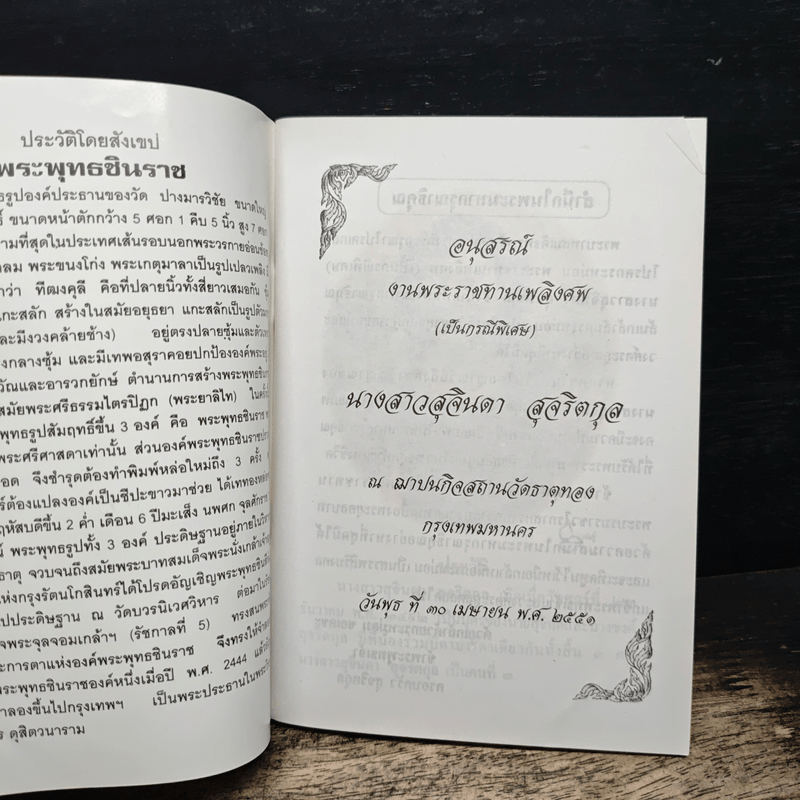 ประวัติโดยสังเขป
พระพุทธชินราช
ธรูปองค์ประธานของวัด ปางมารวิชัย ขนาดใหญ่
ขนาดหน้าตักกว้าง 5 ศอก 1 คืบ 5 นิ้ว สูง 7 ศอก
ามที่สุดในประเทศเส้นรอบนอกพระวรกายอ่อนช้อย
กลม พระขนงโก่ง พระเกตุมาลาเป็นรูปเปลวเพลิง มี
กว่า ทีฆงคุลี คือที่ปลายนิ้วทั้งสี่ยาวเสมอกัน
แกะสลัก สร้างในสมัยอยุธยา แกะสลักเป็นรูปตัว
และมีงวงคล้ายช้าง) อยู่ตรงปลายซุ้มและตัว
งกลางซุ้ม และมีเทพอสุราคอยปกป้ององค์พระอยู่
วัณและอารวกยักษ์ ตำนานการสร้างพระพุทธชิน
สมัยพระศรีธรรมไตรปิฏก (พระยาลิไท) ในครั้ง
พุทธรูปสัมฤทธิ์ขึ้น 3 องค์ คือ พระพุทธชินราช
พระศรีศาสดาเท่านั้น ส่วนองค์พระพุทธชินราช
อด จึงชำรุดต้องทำพิมพ์หล่อใหม่ถึง 3 ครั้ง
ร์ต้องแปลงองค์เป็นชีปะขาวมาช่วย ได้เททอง
ฤหัสบดีขึ้น 2 ค่ำ เดือน 6 ปีมะเส็ง นพศก จุลศักราช
พระพุทธรูปทั้ง 3 องค์ ประดิษฐานอยู่ภายใน
ธาตุ จวบจนถึงสมัยพระบาทสมเด็จพระนั่งเกล้า
แห่งกรุงรัตนโกสินทร์ได้โปรดอัญเชิญพระพุทธชิน
ไปประดิษฐาน ณ วัดบวรนิเวศวิหาร ต่อมาใน
จพระจุลจอมเกล้าฯ (รัชกาลที่ 5) ทรงสน
ะการตาแห่งองค์พระพุทธชินราช จึงทรงให้จำ
พระพุทธชินราชองค์หนึ่งเมื่อปี พ.ศ. 2444
าลองขึ้นไปกรุงเทพฯ เป็นพระประธานใน
ร ดุสิตวนาราม
อนุสรณ์
งานพระราชทานเพลิงศพ
(เป็นกรณีพิเศษ)
นางสาวสุจินดา สุจริตกุล
ณ ฌาปนกิจสถานวัดธาตุทอง
กรุงเทพมหานคร
วันพุธ ที่ ๓๐ เมษายน พ.ศ. ๒๕๕๑